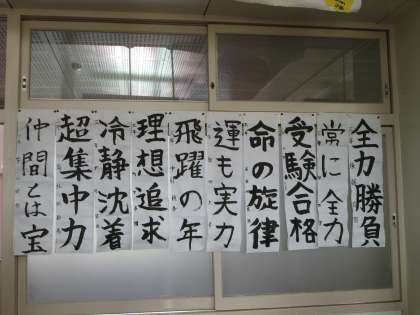 全力勝負
常に全力
受験合格
命の旋律
運も実力
飛躍の年
理想追求
冷静沈着
超集中力
仲間とは宝